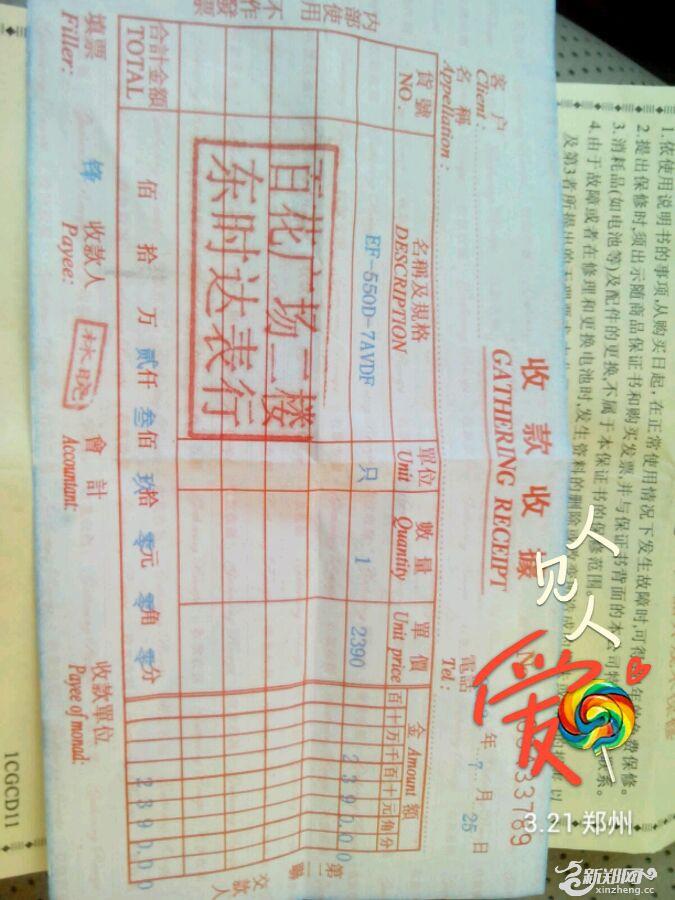 收款收據
GATHERING RECEIPT
33789
客戶名稱
Client
Appellation:
電話
Tel:
年 7 月 25 日
貨號
NO.
名稱及規格
DESCRIPTION
單位
Unit
數量
Quantity
單價
Unit price
金 Amount 額
百十万千百十元角分
EF-550D-7AVDF
只
1
2390
239000
百花广场二楼
东时达表行
合計金額
TOTAL
佰 拾 万 贰仟 叁佰 玖拾 零元 零角 零分
239000
填票
Filler:
锋
收款人
Payee:
林晓
會計
Accountant:
收款單位
Payee of monad:
内部使用
不作發票
第二聯
交款人
1.依使用说明书的事项,从购买日起,在正常使用情况下发生故障时,可得
费保修。
2.提出保修时,须出示随商品保证书和购买发票,并与保证书背面的本公司特
联系。
3.消耗品(如电池等)及配件的更换,不属于本保证书的保修范围。
4.由于故障或者在修理和更换电池时发生资料的删除
及第3者所提出的
1CGCD11
人见人
爱
3.21 郑州
新郑网
xinzheng.cc